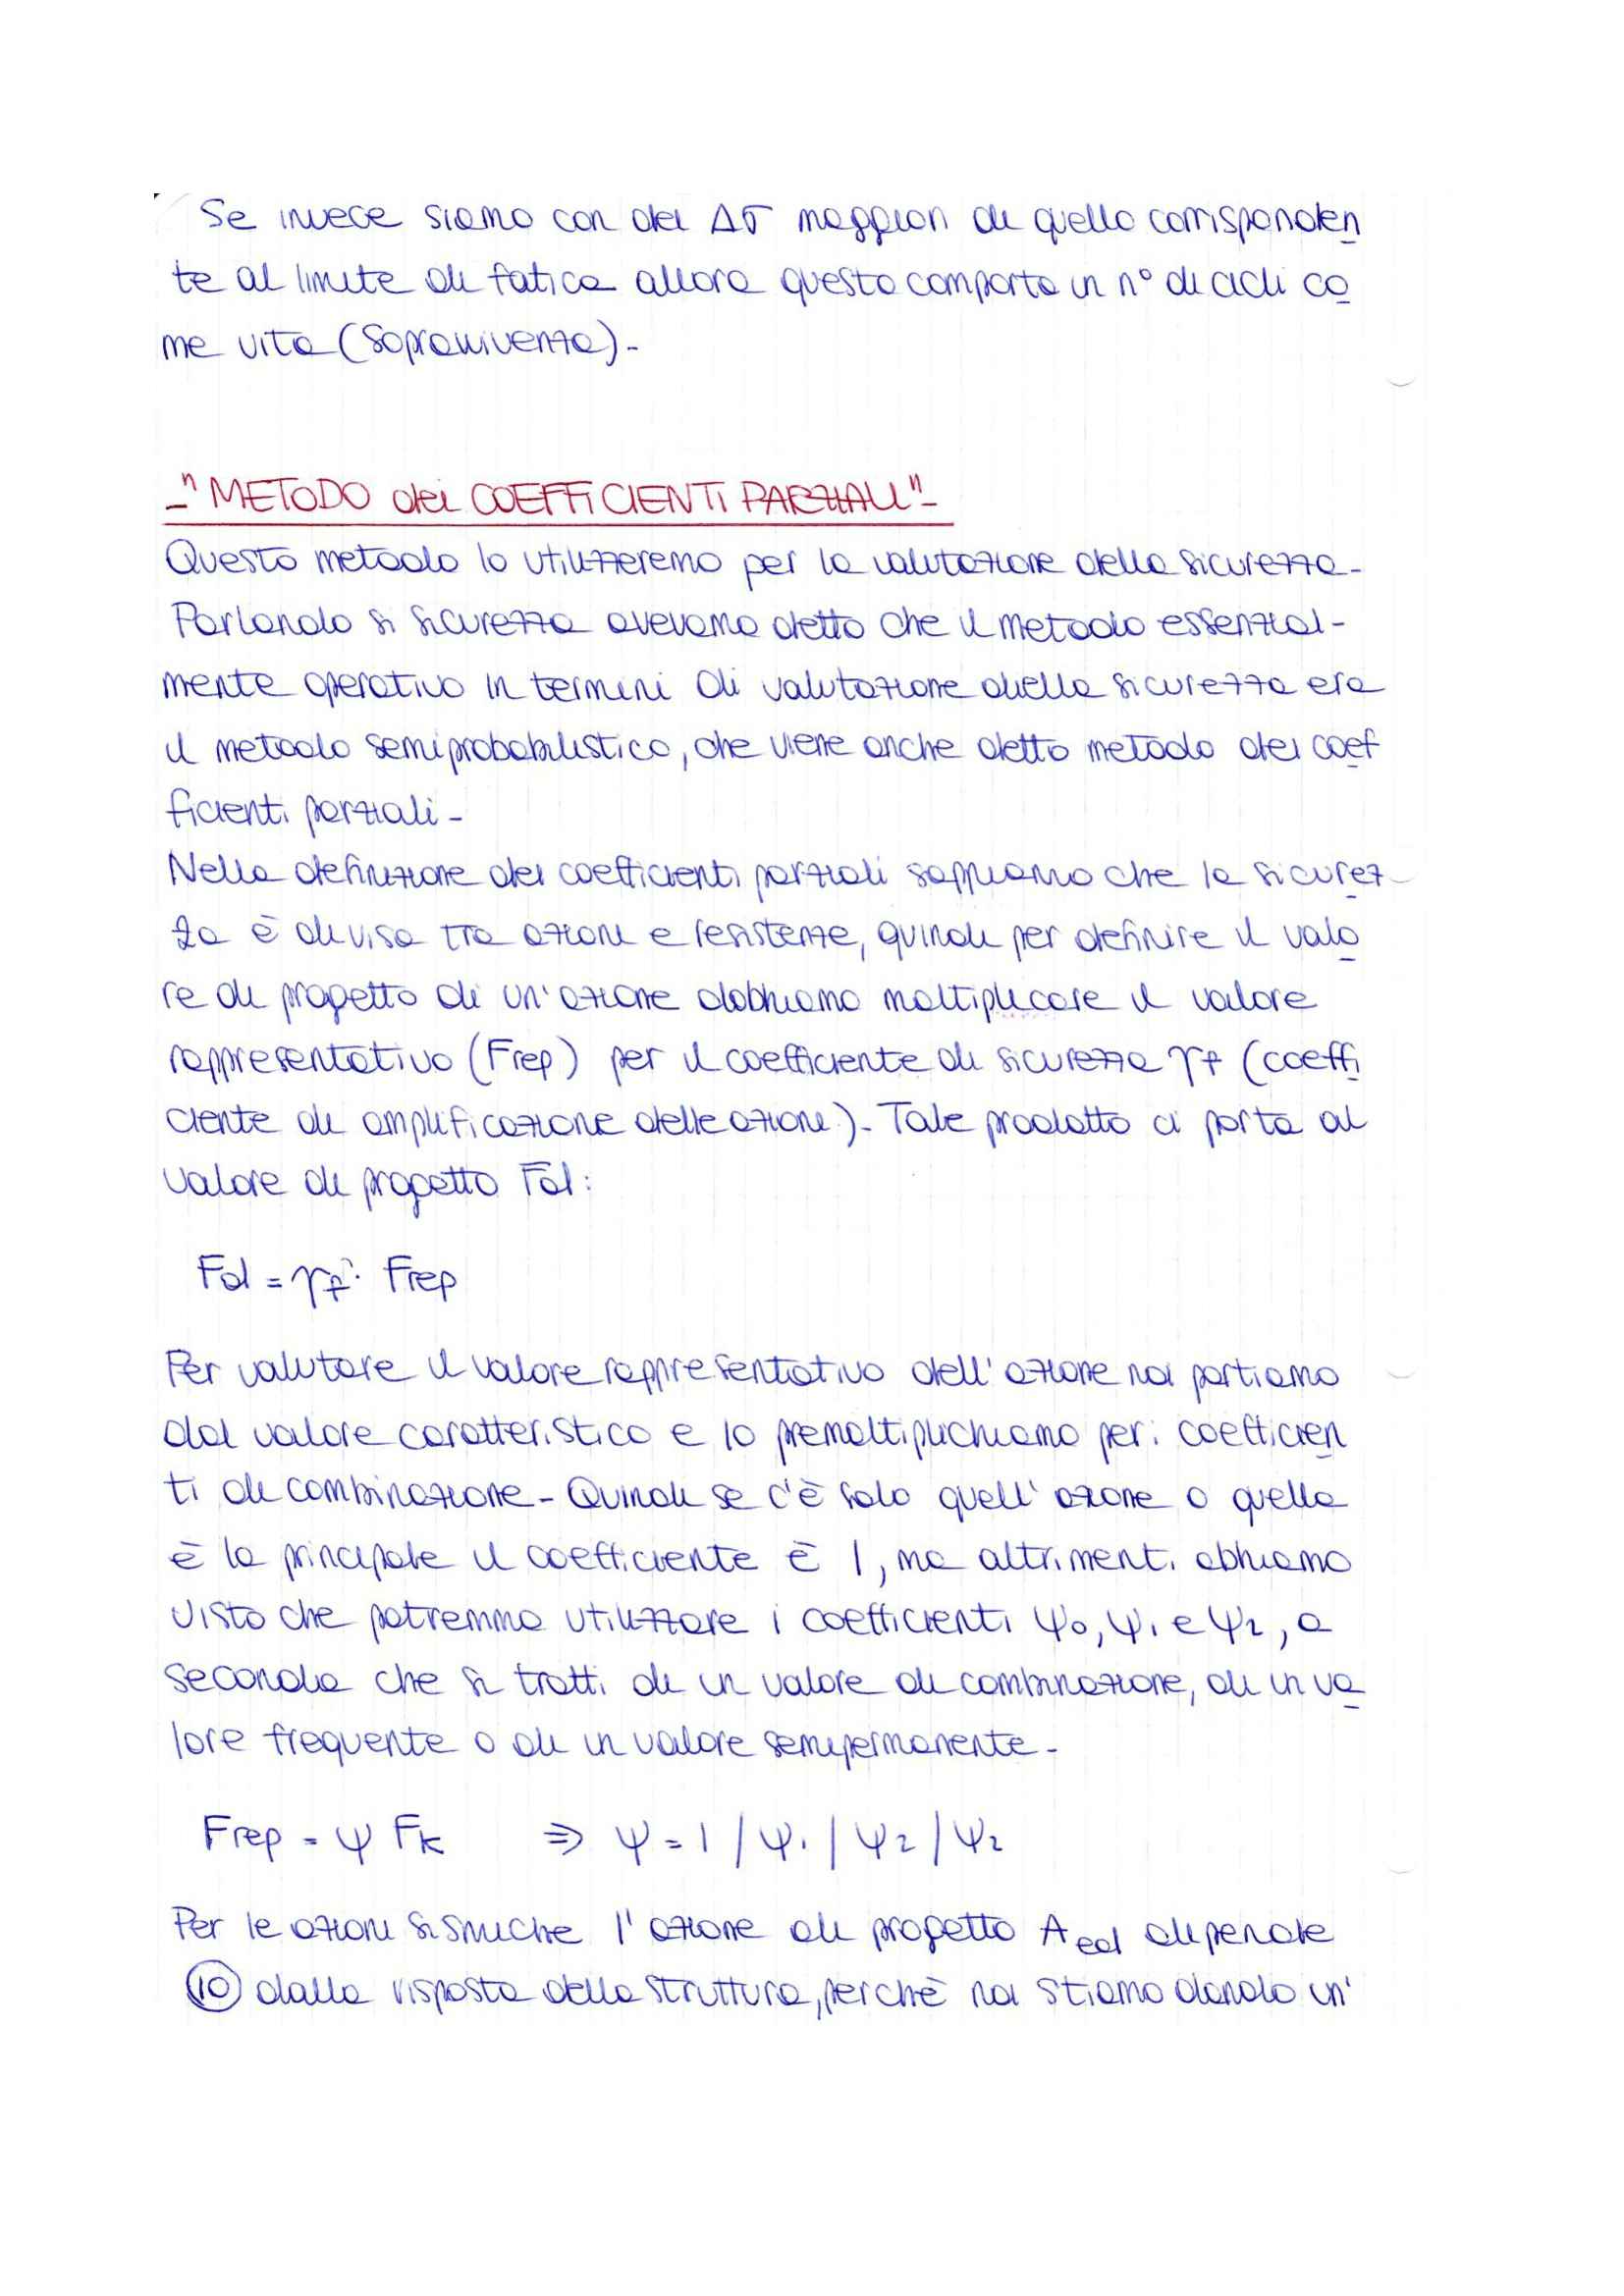 Se invece siamo con dei Δσ maggiori di quello corrisponden
te al limite di fatica allora questo comporta un n° di cicli co
me vita (sopravvivenza)-
-"METODO dei COEFFICIENTI PARZIALI"-
Questo metodo lo utilizzeremo per la valutazione della sicurezza-
Parlando si sicurezza avevamo detto che il metodo essenzial-
mente operativo in termini di valutazione della sicurezza era
il metodo semiprobabilistico, che viene anche detto metodo dei coef
ficienti parziali-
Nella definizione dei coefficienti parziali sappiamo che la sicurez
za è divisa tra azioni e resistenze, quindi per definire il valo
re di progetto di un'azione dobbiamo moltiplicare il valore
rappresentativo (Frep) per il coefficiente di sicurezza γf (coeffi
ciente di amplificazione delle azioni)- Tale prodotto ci porta al
valore di progetto Fd:
Fd = γf · Frep
Per valutare il valore rappresentativo dell'azione noi partiamo
dal valore caratteristico e lo premoltiplichiamo per i coefficien
ti di combinazione- Quindi se c'è solo quell'azione o quella
è la principale il coefficiente è 1, ma altrimenti abbiamo
visto che potremmo utilizzare i coefficienti ψ0, ψ1 e ψ2, a
seconda che si tratti di un valore di combinazione, di un va
lore frequente o di un valore semipermanente-
Frep = ψ Fk ⇒ ψ = 1 / ψ1 / ψ2 / ψ2
Per le azioni sismiche l'azione di progetto Aed dipende
10 dalla risposta della struttura, perchè noi stiamo dando un'